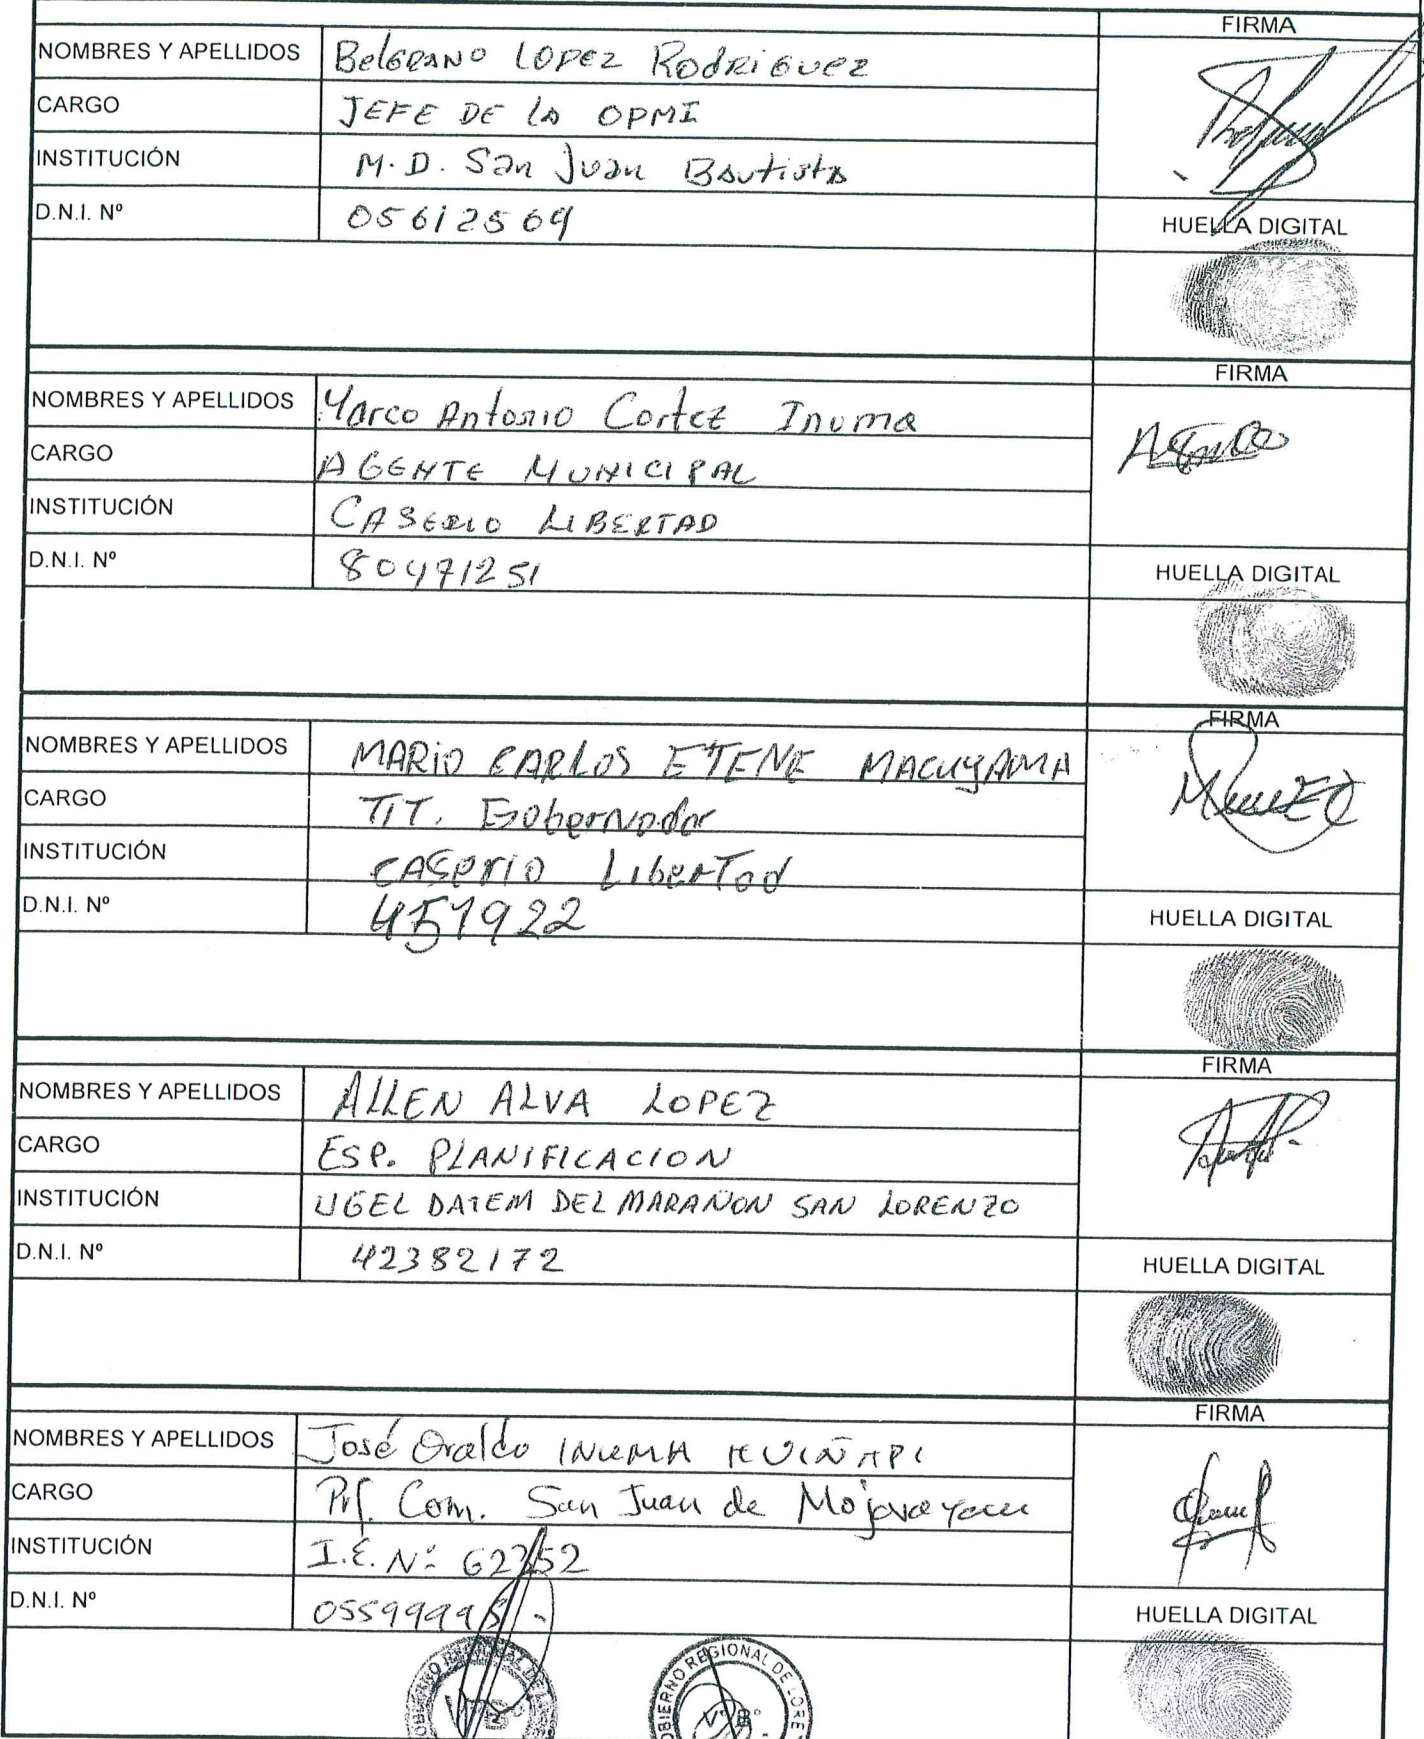 FIRMA
NOMBRES Y APELLIDOS Belgrano Lopez Rodriguez
CARGO JEFE DE La OPMI
INSTITUCIÓN M.D. San Juan Bautista
D.N.I. Nº 05612569
HUELLA DIGITAL
FIRMA
NOMBRES Y APELLIDOS Marco Antonio Cortez Inuma
CARGO AGENTE MUNICIPAL
INSTITUCIÓN CASERIO LIBERTAD
D.N.I. Nº 80471251
HUELLA DIGITAL
FIRMA
NOMBRES Y APELLIDOS MARIO CARLOS ETENE MACUYAMA
CARGO TIT. Gobernador
INSTITUCIÓN CASERIO LiberTad
D.N.I. Nº 457922
HUELLA DIGITAL
FIRMA
NOMBRES Y APELLIDOS ALLEN ALVA LOPEZ
CARGO ESP. PLANIFICACION
INSTITUCIÓN UGEL DATEM DEL MARAÑON SAN LORENZO
D.N.I. Nº 42382172
HUELLA DIGITAL
FIRMA
NOMBRES Y APELLIDOS José Oraldo INUMA
CARGO Prf. Com. San Juan de
INSTITUCIÓN I.E. Nº 62352
D.N.I. Nº
HUELLA DIGITAL
GOBIERNO REGIONAL DE LORE
VºBº